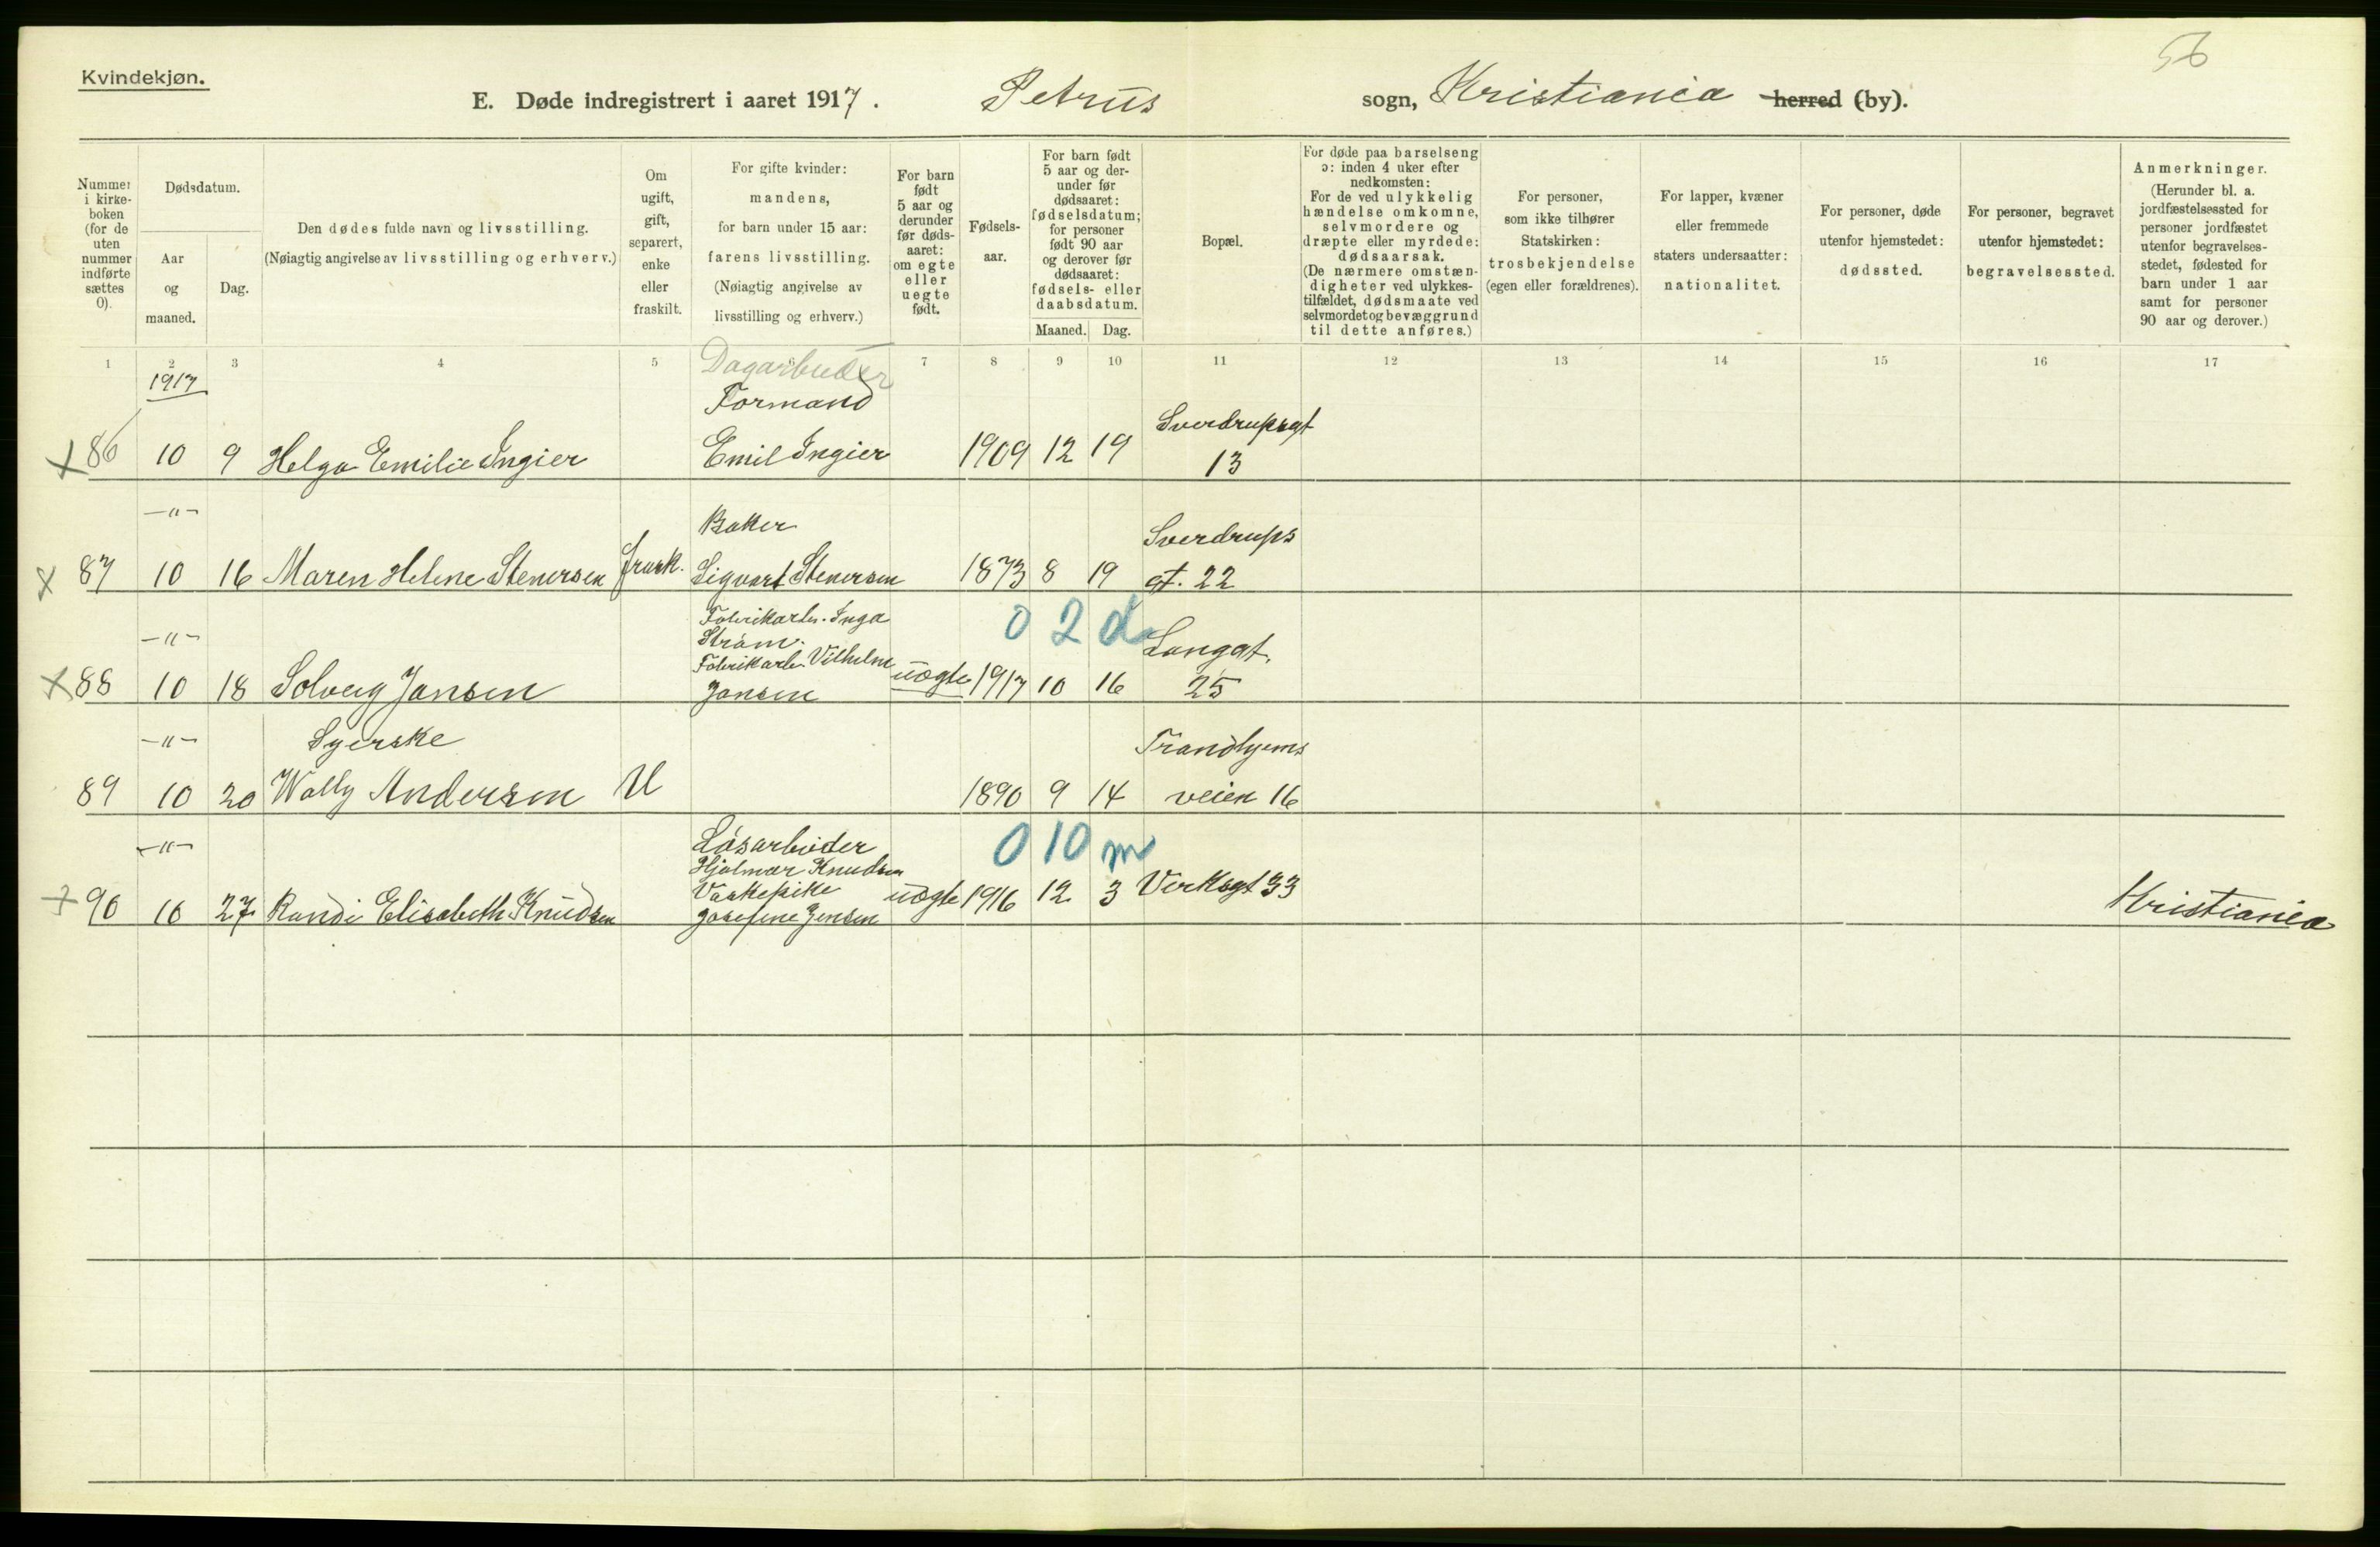 56
Kvindekjøn.
E. Døde indregistrert i aaret 1917. Petrus sogn, Kristiania herred (by).
Nummer i kirke- boken (for de uten nummer indførte sættes 0).
Dødsdatum.
Aar og maaned.
Dag.
Den dødes fulde navn og livsstilling.
(Nøiagtig angivelse av livsstilling og erhverv.)
Om ugift, gift, separert, enke eller fraskilt.
For gifte kvinder: mandens, for barn under 15 aar: farens livsstilling. (Nøiagtig angivelse av livsstilling og erhverv.)
For barn født 5 aar og derunder før døds- aaret: om egte eller uegte født.
Fødsels- aar.
For barn født 5 aar og der- under før dødsaaret: fødselsdatum; for personer født 90 aar og derover før dødsaaret: fødsels- eller daabsdatum.
Maaned. Dag.
Bopæl.
For døde paa barselseng ɔ: inden 4 uker efter nedkomsten: For de ved ulykkelig hændelse omkomne, selvmordere og dræpte eller myrdede: dødsaarsak. (De nærmere omstæn- digheter ved ulykkes- tilfældet, dødsmaate ved selvmordet og bevæggrund til dette anføres.)
For personer, som ikke tilhører Statskirken: trosbekjendelse (egen eller forældrenes).
For lapper, kvæner eller fremmede staters undersaatter: nationalitet.
For personer, døde utenfor hjemstedet: dødssted.
For personer, begravet utenfor hjemstedet: begravelsessted.
Anmerkninger. (Herunder bl. a. jordfæstelsessted for personer jordfæstet utenfor begravelses- stedet, fødested for barn under 1 aar samt for personer 90 aar og derover.)
1 2 3 4 5 7 8 9 10 11 12 13 14 15 16 17
1917 Dagarbeider
Formand
Sverdrupsgt
86 10 9 Helga Emilie Ingier Emil Ingier 1909 12 19 13
-"- Baker Sverdrups
87 10 16 Maren Helene Stenersen frask. Sigvart Stenersen 1873 8 19 gt. 22
Fabrikarb. Inga 0 2 d
-"- Strøm. Langgt.
Fabrikarb. Vilhelm
88 10 18 Solveig Jansen Jansen uegte 1917 10 16 25
-"- Syerske Trondhjems
89 10 20 Wally Andersen U 1890 9 14 veien 16
-"- Løsarbeider 0 10 m
Hjalmar Knudsen
Vaskepike
90 10 27 Randi Elisabeth Knudsen Josefine Jensen uegte 1916 12 3 Verksgt 33 Kristiania